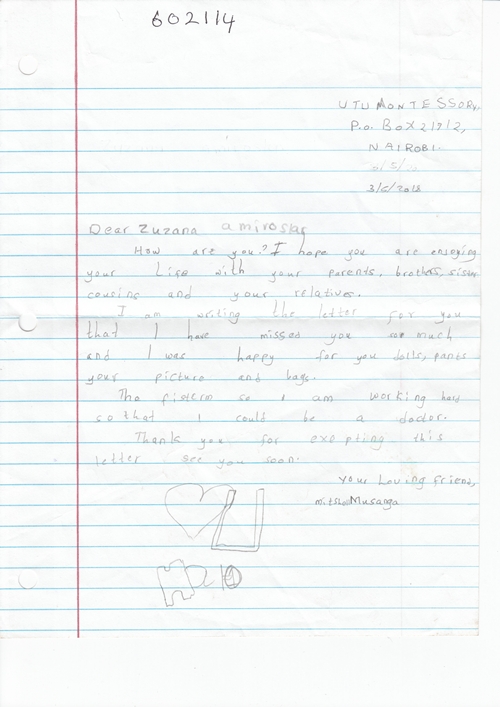 602114
UTU MONTESSORY.
P.o. BOX 21312,
NAIROBI.
3/6/2018
Dear Zuzana amiroslag
How are you? I hope you are enjoying
your Life with your parents, brothers, sister
cousins and your relatives.
I am writing the letter for you
that I have missed you soo much
and I was happy for you dolls, pants
your picture and bags.
The fisterm so I am working hard
so that I could be a doctor.
Thank you for exepting this
letter see you soon.
your Loving friend,
Musagga